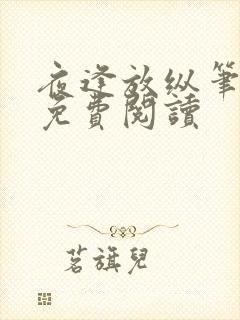 夜逢放纵筆
免費閱讀
茗旗兒